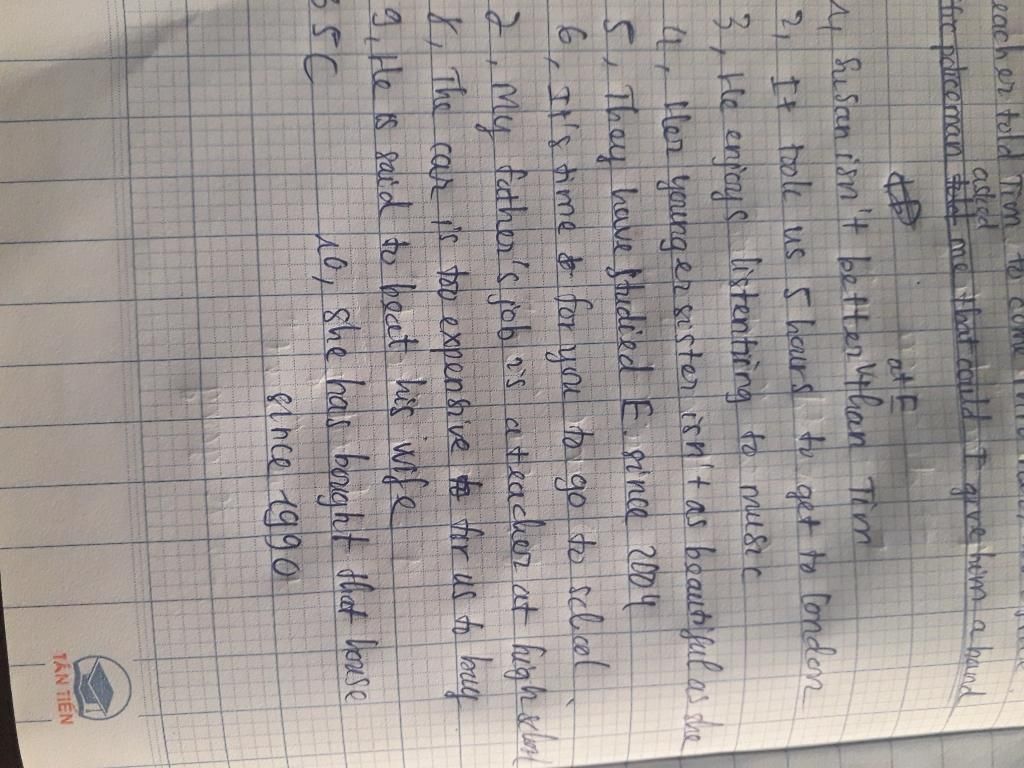 eacher told Tim to come into
asked
the policeman told me that could I give him a hand
at E
1, Susan isn't better than Tim
2, It took us 5 hours to get to London
3, He enjoys listenting to music
4, Her younger sister isn't as beautiful as she
5, They have studied E. since 2004
6, It's time for you to go to school
7, My father's job is a teacher at high school
8, The car is too expensive for us to buy
9, He is said to beat his wife
35C
10, she has bought that house
since 1990
TÂN TIẾN